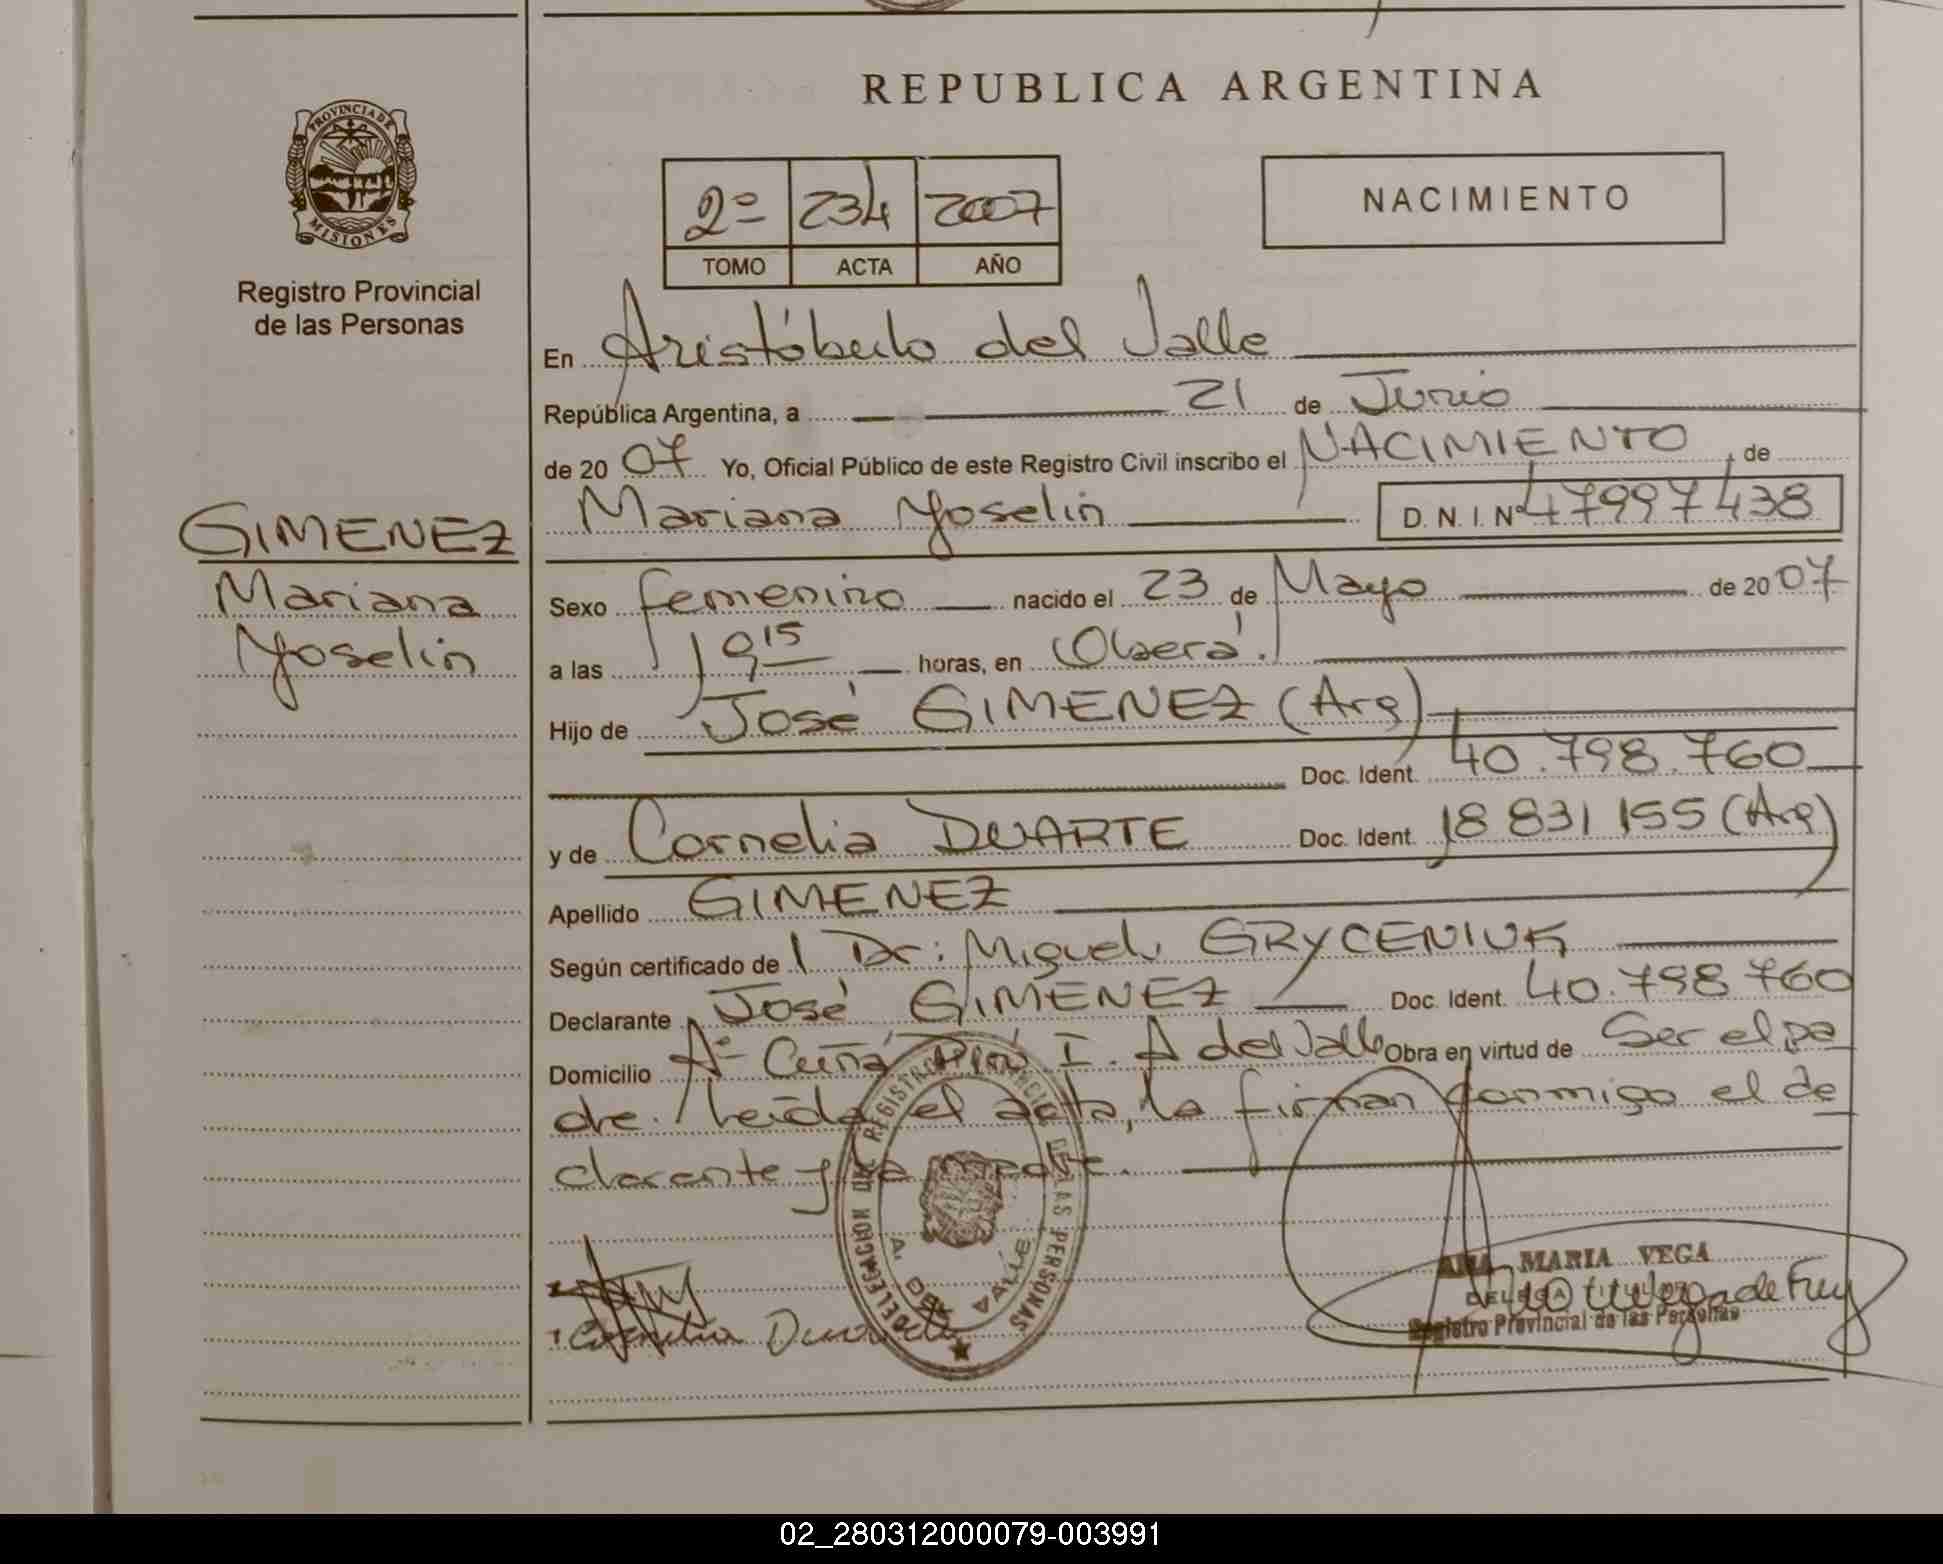 REPUBLICA ARGENTINA
PROVINCIA DE MISIONES
Registro Provincial
de las Personas
2º 234 2007
TOMO ACTA AÑO
NACIMIENTO
En Aristóbulo del Valle
República Argentina, a 21 de Junio
de 2007 Yo, Oficial Público de este Registro Civil inscribo el NACIMIENTO, de
Mariana Yoselin D.N.I. Nº 47997438
GIMENEZ
Mariana
Yoselin
Sexo femenino nacido el 23 de Mayo de 2007
a las 19 15 horas, en Oberá.
Hijo de José GIMENEZ (Arg)
Doc. Ident. 40.798.760
y de Cornelia DUARTE Doc. Ident. 18 831 155 (Arg)
Apellido GIMENEZ
Según certificado de Dr: Miguel GRYCENIUK
Declarante José GIMENEZ Doc. Ident. 40.798 760
Domicilio Aº Cuñá Pirú I. A del Valle Obra en virtud de Ser el pa
dre. Leída el acta, la firman conmigo el de
clarante y la madre.
DELEGACION DEL REGISTRO PROVINCIAL DE LAS PERSONAS
A. DEL VALLE
Cornelia Duarte
ANA MARIA VEGA
Registro Provincial de las Personas
02_280312000079-003991